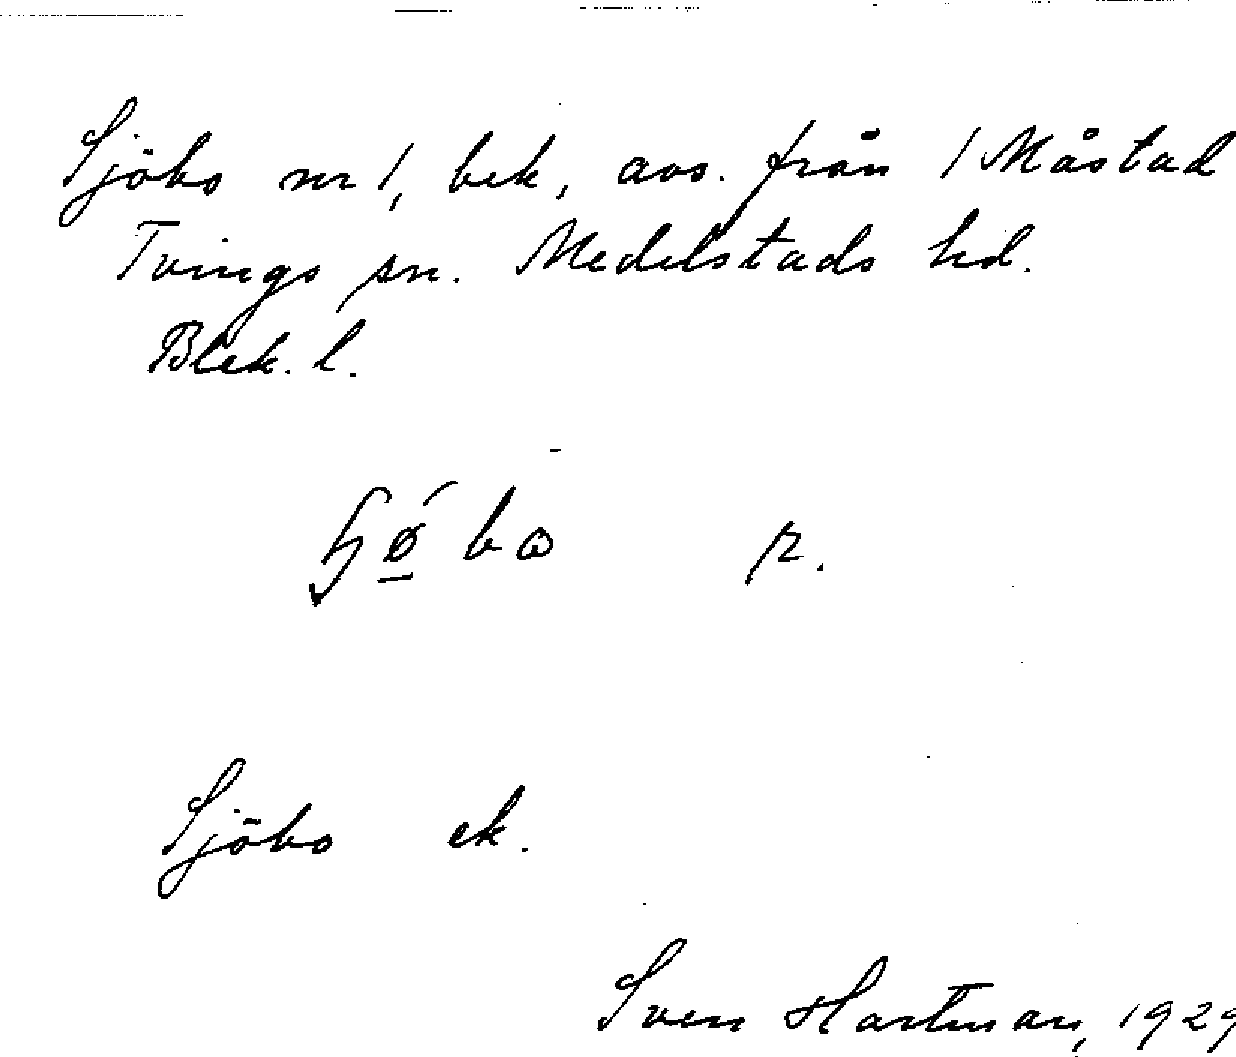 Sjöbo nr 1, bek, avs. från 1 Måstad
Tvings sn. Medelstads hd.
Blek. l.
r.
Sjöbo ek.
Sven Hartman, 1929